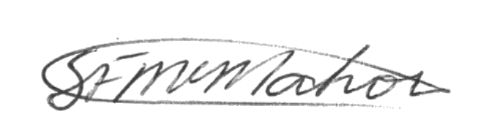 SF McMahon